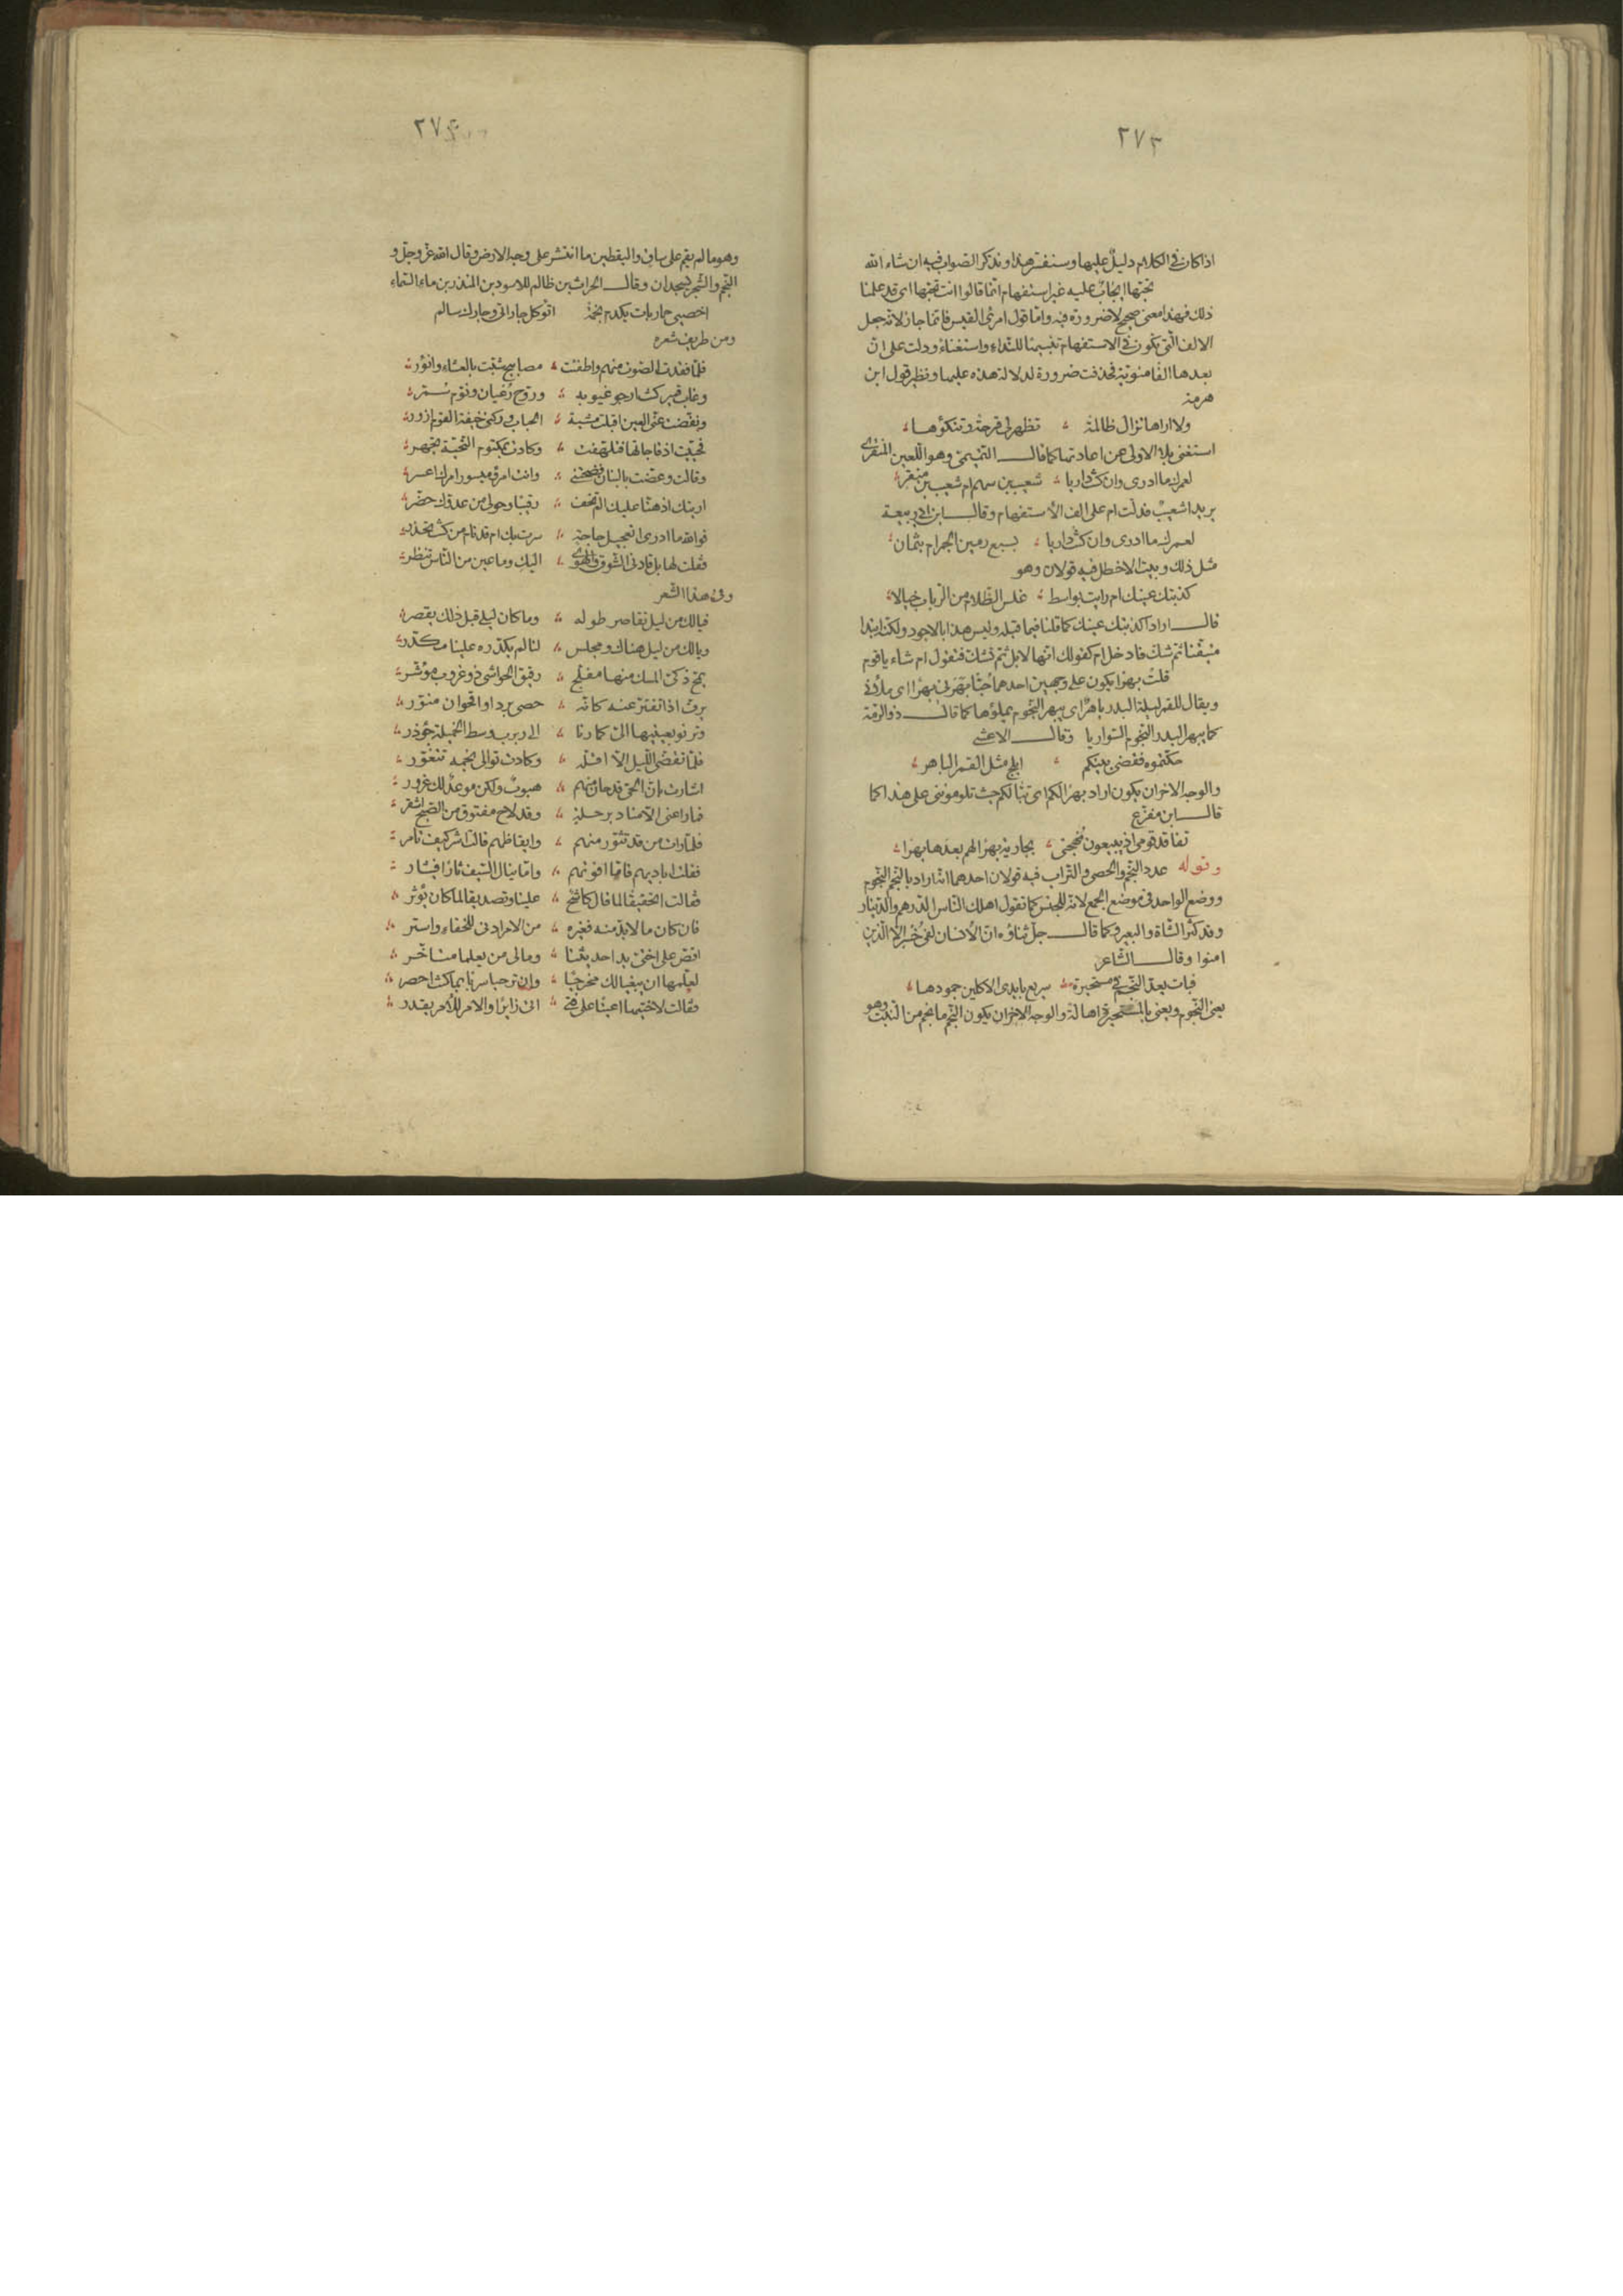 ٢٧٣
اذا كان في الكلام دليل عليها وسنفسر هذا ونذكر الصواب فيه ان شاء الله
تحبها ايجاب عليه غير استفهام انما قالوا انت تحبها اى قد علمنا
ذلك فهذا معنى صحيح لا ضرورة فيه واما قول امرئ القيس فانما جاز لانه جعل
الالف التى تكون في الاستفهام تنبيها للنداء واستغناء ودلت على ان
بعدها الفا منوية فحذفت ضرورة لدلالة هذه عليها ونظير قول ابن
هرمة
ولا اراها تزال ظالمة ؞ تظهر لى قرحة وتنكؤها ؞
استغنى بلا الاولى عن اعادتها كما قال التميمى وهو اللعين المنقرى
لعمرك ما ادرى وان كنت داريا ؞ شعيب بن سهم ام شعيب بن منقر ؞
يريد اشعيب فدلت ام على الف الاستفهام وقال ابن ابى ربيعة
لعمرك ما ادرى وان كنت داريا ؞ بسبع رمين الجمرام بثمان ؞
مثل ذلك وبيت الاخطل فيه قولان وهو
كذبتك عينك ام رايت بواسط ؞ غلس الظلام من الرباب خيالا ؞
قال اراد اكذبتك عينك كما قلنا فيما قبله وليس هذا بالاجود ولكنه ابتدا
متيقنا ثم شك فادخل ام كقولك انها لابل ثم تشك فتقول ام شاء يا قوم
قلت بهرا يكون على وجهين احدهما حبا بهرنى بهرا اى ملأنى
ويقال للقمر ليلة البدر باهر اى يبهر النجوم يملؤها كما قال ذو الرمة
كما يبهر البدر النجوم السواريا وقال الاعشى
حكمتموه فقضى بينكم ؞ ابلج مثل القمر الباهر ؞
والوجه الاخر ان يكون اراد بهرا لكم اى تبا لكم حيث تلوموننى على هذا كما
قال ابن مفرغ
تفاقد قومى اذ يبيعون مهجتى ؞ بجارية بهرا لهم بعدها بهرا ؞
وقوله عدد النجم والحصى والتراب فيه قولان احدهما انه اراد بالنجم النجوم
ووضع الواحد فى موضع الجمع لانه للجنس كما تقول اهلك الناس الدرهم والدينار
وقد كثر الشاة والبعير وكما قال جل ثناؤه ان الانسان لفى خسر الا الذين
امنوا وقال الشاعر
فبات يعد النجم فى مستحيرة ؞ سريع بايدى الاكلين جمودها ؞
يعنى النجوم ويعنى بالمستحيرة اهالة والوجه الاخر ان يكون النجم ما نجم من النبت وهو
٢٧٤
وهو ما لم يقم على ساق واليقطين ما انتشر على وجه الارض وقال الله عز وجل و
النجم والشجر يسجدان وقال الحرث بن ظالم للاسود بن المنذر بن ماء السماء
اخصيى حمار بات يكدم نجمة اتؤكل جاراتى وجارك سالم
ومن طريف شعره
فلما فقدت الصوت منهم واطفئت ؞ مصابيح شبت بالعشاء وانؤر ؞
وغاب قمير كنت ارجو غيوبه ؞ وروح رعيان ونوم سمر ؞
ونفضت عنى العين اقبلت مشية ؞ الحباب وركنى خيفة القوم ازور ؞
فحييت اذ فاجاتها فتلهفت ؞ وكادت بمكتوم التحية تجهر ؞
وقالت وعضت بالبنان فضحتنى ؞ وانت امرؤ ميسور امرك اعسر ؞
اريتك اذ هنا عليك الم تخف ؞ رقيبا وحولى من عدوك حضر ؞
فوالله ما ادرى اتعجيل حاجة ؞ سرت بك ام قد نام من كنت تحذر ؞
فقلت لها بل قادنى الشوق والهوى ؞ اليك وما عين من الناس تنظر ؞
وفى هذا الشعر
فيالك من ليل تقاصر طوله ؞ وما كان ليلى قبل ذلك يقصر ؞
ويالك من ليل هناك ومجلس ؞ لنا لم يكدره علينا مكدر ؞
يمج ذكى المسك منها مفلج ؞ رقيق الحواشى ذو غروب مؤشر ؞
يرف اذا تفتر عنه كانه ؞ حصى برد او اقحوان منور ؞
وترنو بعينيها الى كما رنا ؞ الى ربرب وسط الخميلة جؤذر ؞
فلما تقضى الليل الا اقله ؞ وكادت توالى نجمه تتغور ؞
اشارت بان الحى قد حان منهم ؞ هبوب ولكن موعد لك عزور ؞
فما راعنى الا مناد برحلة ؞ وقد لاح مفتوق من الصبح اشقر ؞
فلما رات من قد تثور منهم ؞ وايقاظهم قالت اشر كيف تامر ؞
فقلت اباديهم فاما افوتهم ؞ واما ينال السيف ثارا فيثار ؞
فقالت اتحقيقا لما قال كاشح ؞ علينا وتصديقا لما كان يؤثر ؞
فان كان ما لابد منه فغيره ؞ من الامر ادنى للخفاء واستر ؞
اقص على اختى بدا حديثنا ؞ ومالى من يعلما متاخر ؞
لعلهما ان يبغيا لك مخرجا ؞ وان ترحبا سربا بما كنت احصر ؞
فقالت لاختيها اعينا على فتى ؞ اتى زائرا والامر للامر يقدر ؞